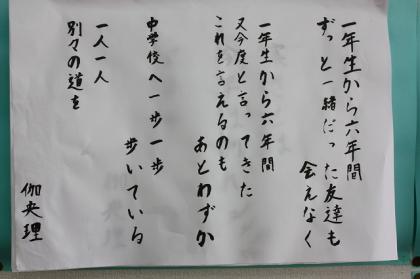 一年生から六年間
ずっと一緒だった友達も
会えなく
一年生から六年間
又今度と言ってきた
これを言えるのも
あとわずか
中学校へ一歩一歩
歩いている
一人一人
別々の道を
伽央理